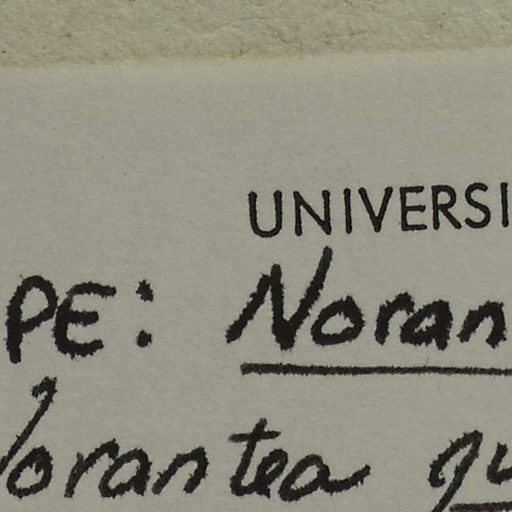 UNIVERSI
PE: Noran
Norantea gu